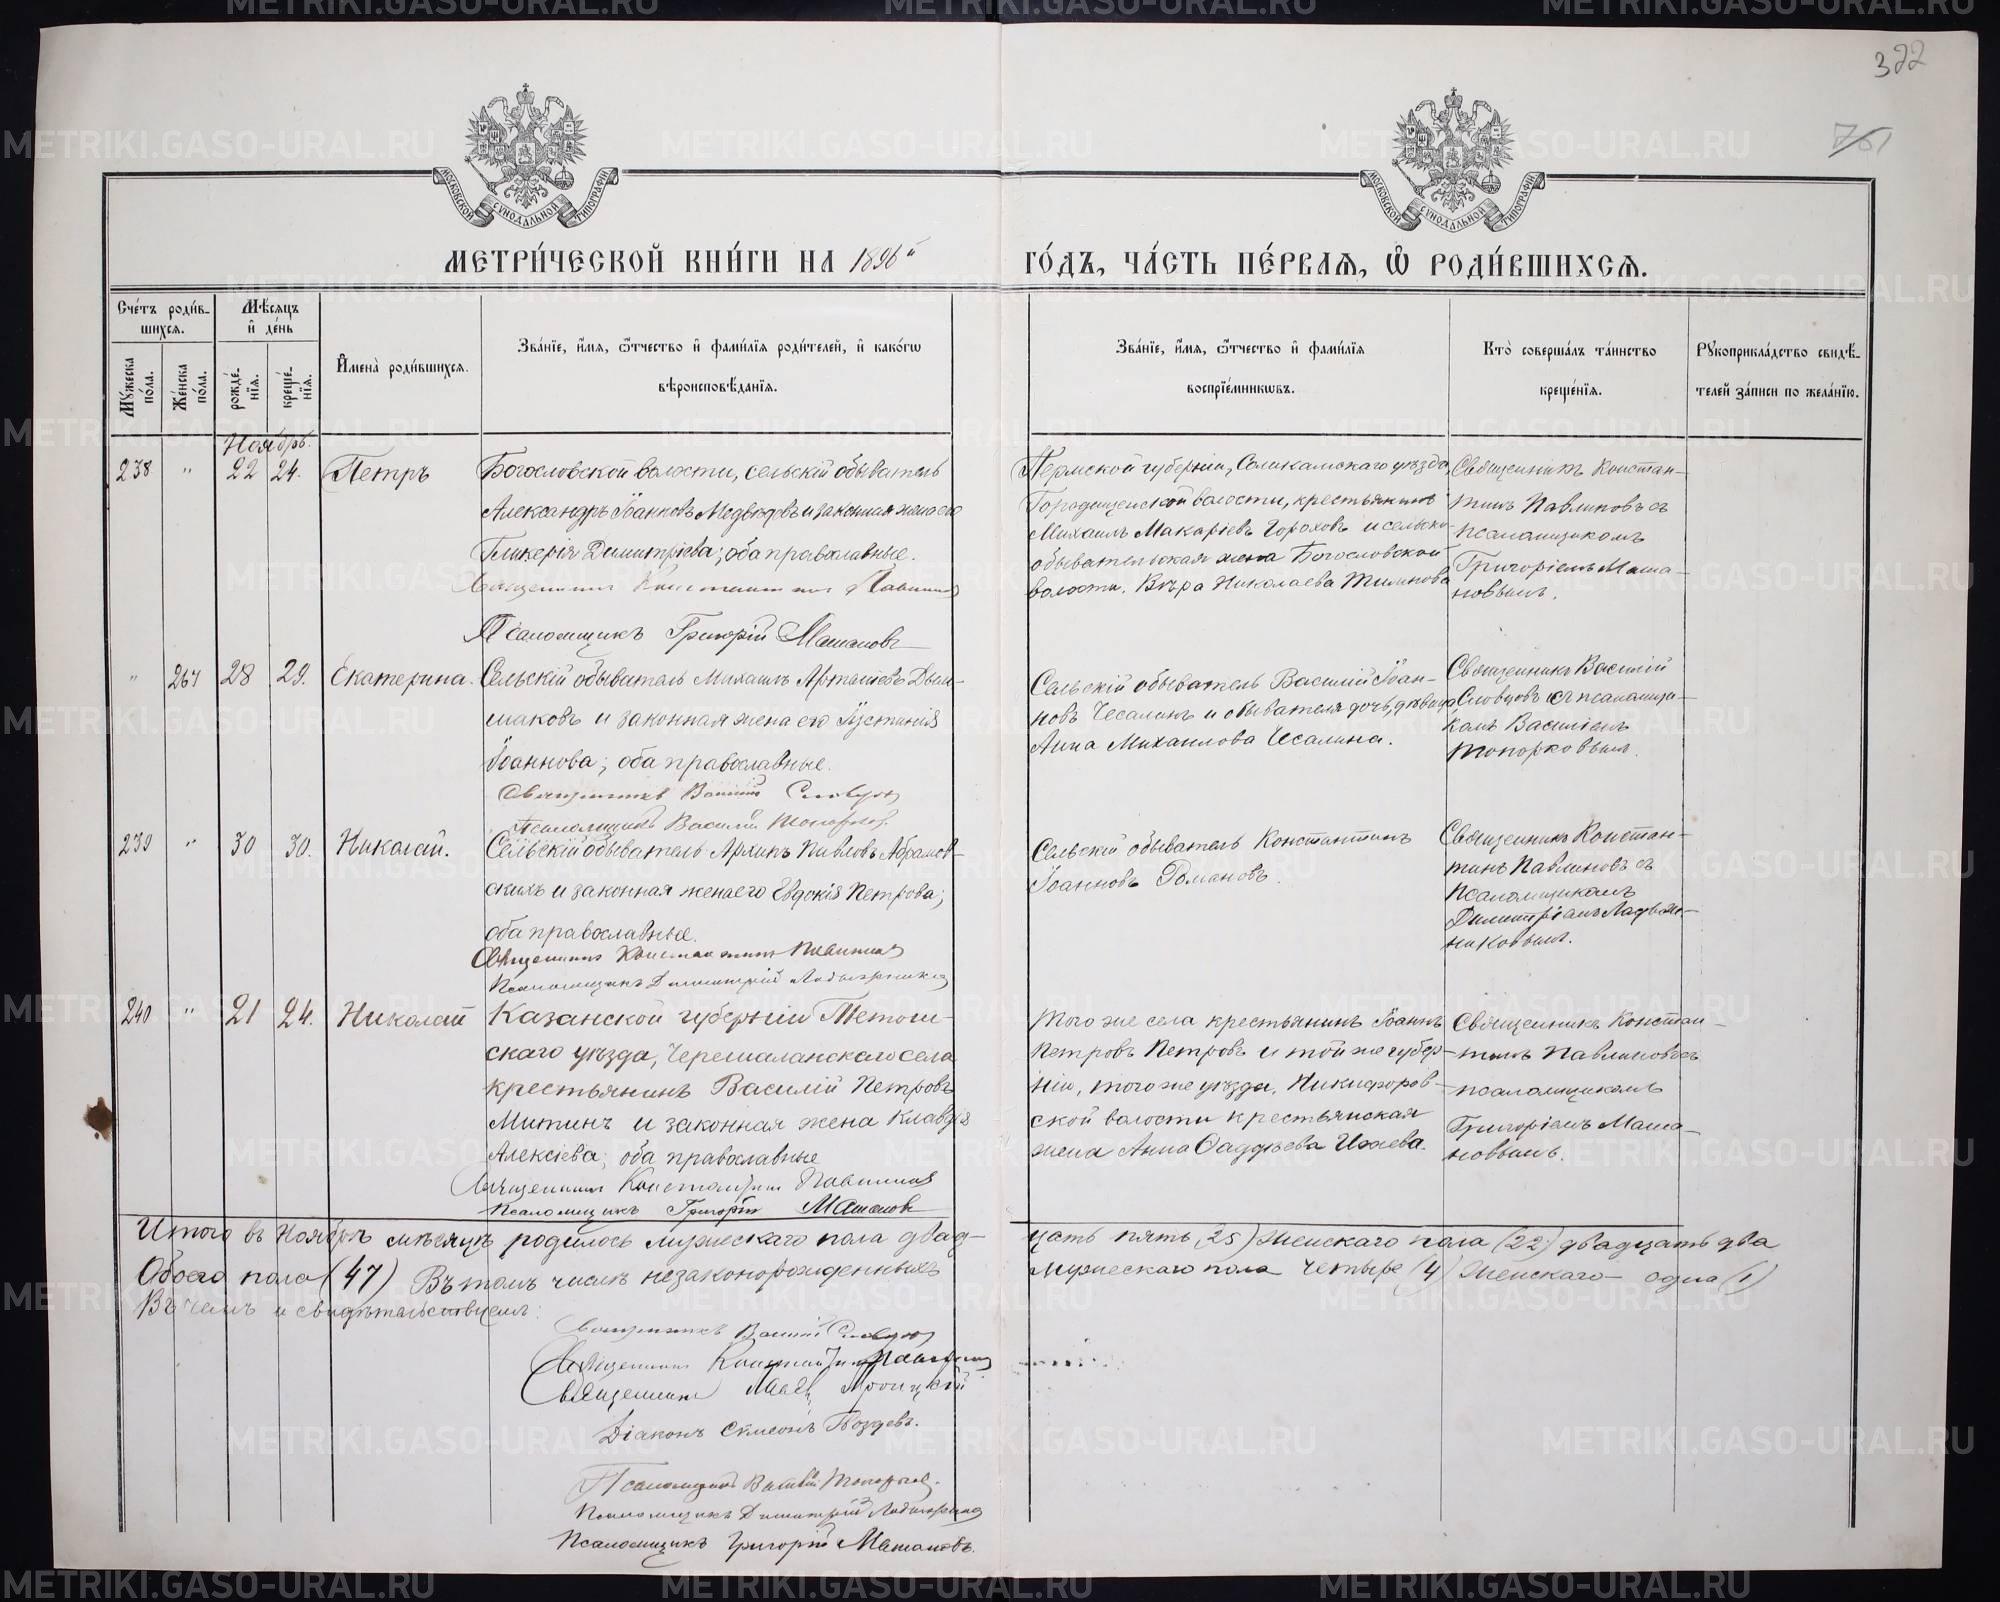 322
761
МОСКОВСКОЙ СѴНОДАЛЬНОЙ ТИПОГРАФІИ
МОСКОВСКОЙ СѴНОДАЛЬНОЙ ТИПОГРАФІИ
МЕТРИ́ЧЕСКОЙ КНИ́ГИ НА 1896й ГО́ДЪ, ЧА́СТЬ ПЕ́РВАЯ, Ѡ РОДИ́ВШИХСЯ.
Сче́тъ роди́в-
шихся.
Мѣ́сяцъ
и де́нь
Имена̀ роди́вшихся.
Зва́нїе, и́мя, ѻ́тчество и фами́лїя роди́телей, и како́гѡ
вѣроисповѣ́данїя.
Зва́нїе, и́мя, ѻ́тчество и фами́лїя
воспрїе́мниковъ.
Кто̀ соверша́лъ та́инство
креще́нїя.
Рукоприкла́дство свидѣ́-
телей за́писи по жела́нїю.
Му́жеска
по́ла.
Же́нска
по́ла.
рожде́-
нїя.
креще́-
нїя.
Ноябрь.
238 " 22 24. Петръ
Богословской волости, сельскій обыватель
Александръ Іоанновъ Медвѣдевъ и законная жена его
Гликерія Димитріева; оба православные.
Священникъ Константинъ Павлинов
Псаломщикъ Григорій Машановъ
Пермской губерніи, Соликамскаго уѣзда,
Городищенской волости, крестьянинъ
Михаилъ Макаріевъ Гороховъ и сельско-
обывательская жена Богословской
волости, Вѣра Николаева Тиминова
Священникъ Констан-
тинъ Павлиновъ съ
псаломщикомъ
Григоріемъ Маша-
новымъ.
" 267 28 29. Екатерина.
Сельскій обыватель Михаилъ Арташіевъ Дым-
маковъ и законная жена его Іустинія
Іоаннова; оба православные.
Священникъ Василій Словцов
Псаломщикъ Василій Топорков.
Сельскій обыватель Василій Іоан-
новъ Чесалинъ и обывателя дочь, дѣвица,
Анна Михаилова Чесалина.
Священникъ Василій
Словцовъ съ псаломщи-
комъ Василіемъ
Топорковымъ.
239 " 30 30. Николай.
Сельскій обыватель Архипъ Павловъ Абрамов-
скихъ и законная жена его Евдокія Петрова;
оба православные.
Священникъ Константинъ Павлинов
Псаломщикъ Димитрій Ладыжников
Сельскій обыватель Константинъ
Іоанновъ Романовъ.
Священникъ Констан-
тинъ Павлиновъ съ
псаломщикомъ
Димитріемъ Ладыж-
никовымъ.
240 " 21 24. Николай
Казанской губерніи Тетюш-
скаго уѣзда, Черемшанскаго села
крестьянинъ Василій Петровъ
Митинъ и законная жена Клавдія
Алексіева; оба православные
Священникъ Константинъ Павлинов
Псаломщикъ Григорій Машановъ
Того же села крестьянинъ Іоаннъ
Петровъ Петровъ и той же губер-
ніи, того же уѣзда, Никифоров-
ской волости крестьянская
жена Анна Ѳаддѣева Ижаева.
Священникъ Констан-
тинъ Павлиновъ съ
псаломщикомъ
Григоріемъ Маша-
новымъ.
Итого въ Ноябрѣ мѣсяцѣ родилось мужескаго пола двад-
цать пять (25) Женскаго пола (22) двадцать два
Обоего пола (47) Въ томъ числѣ незаконорожденныхъ
мужескаго пола четыре (4) Женскаго одна (1)
Въ чемъ и свидѣтельствуемъ:
Священникъ Василій Словцов
Священникъ Константинъ Павлинов
Священникъ Троицкій
Діаконъ Сѵмеонъ Гвоздевъ.
Псаломщикъ Василій Топорков.
Псаломщикъ Димитрій Ладыжников
Псаломщикъ Григорій Машановъ.
METRIKI.GASO-URAL.RU